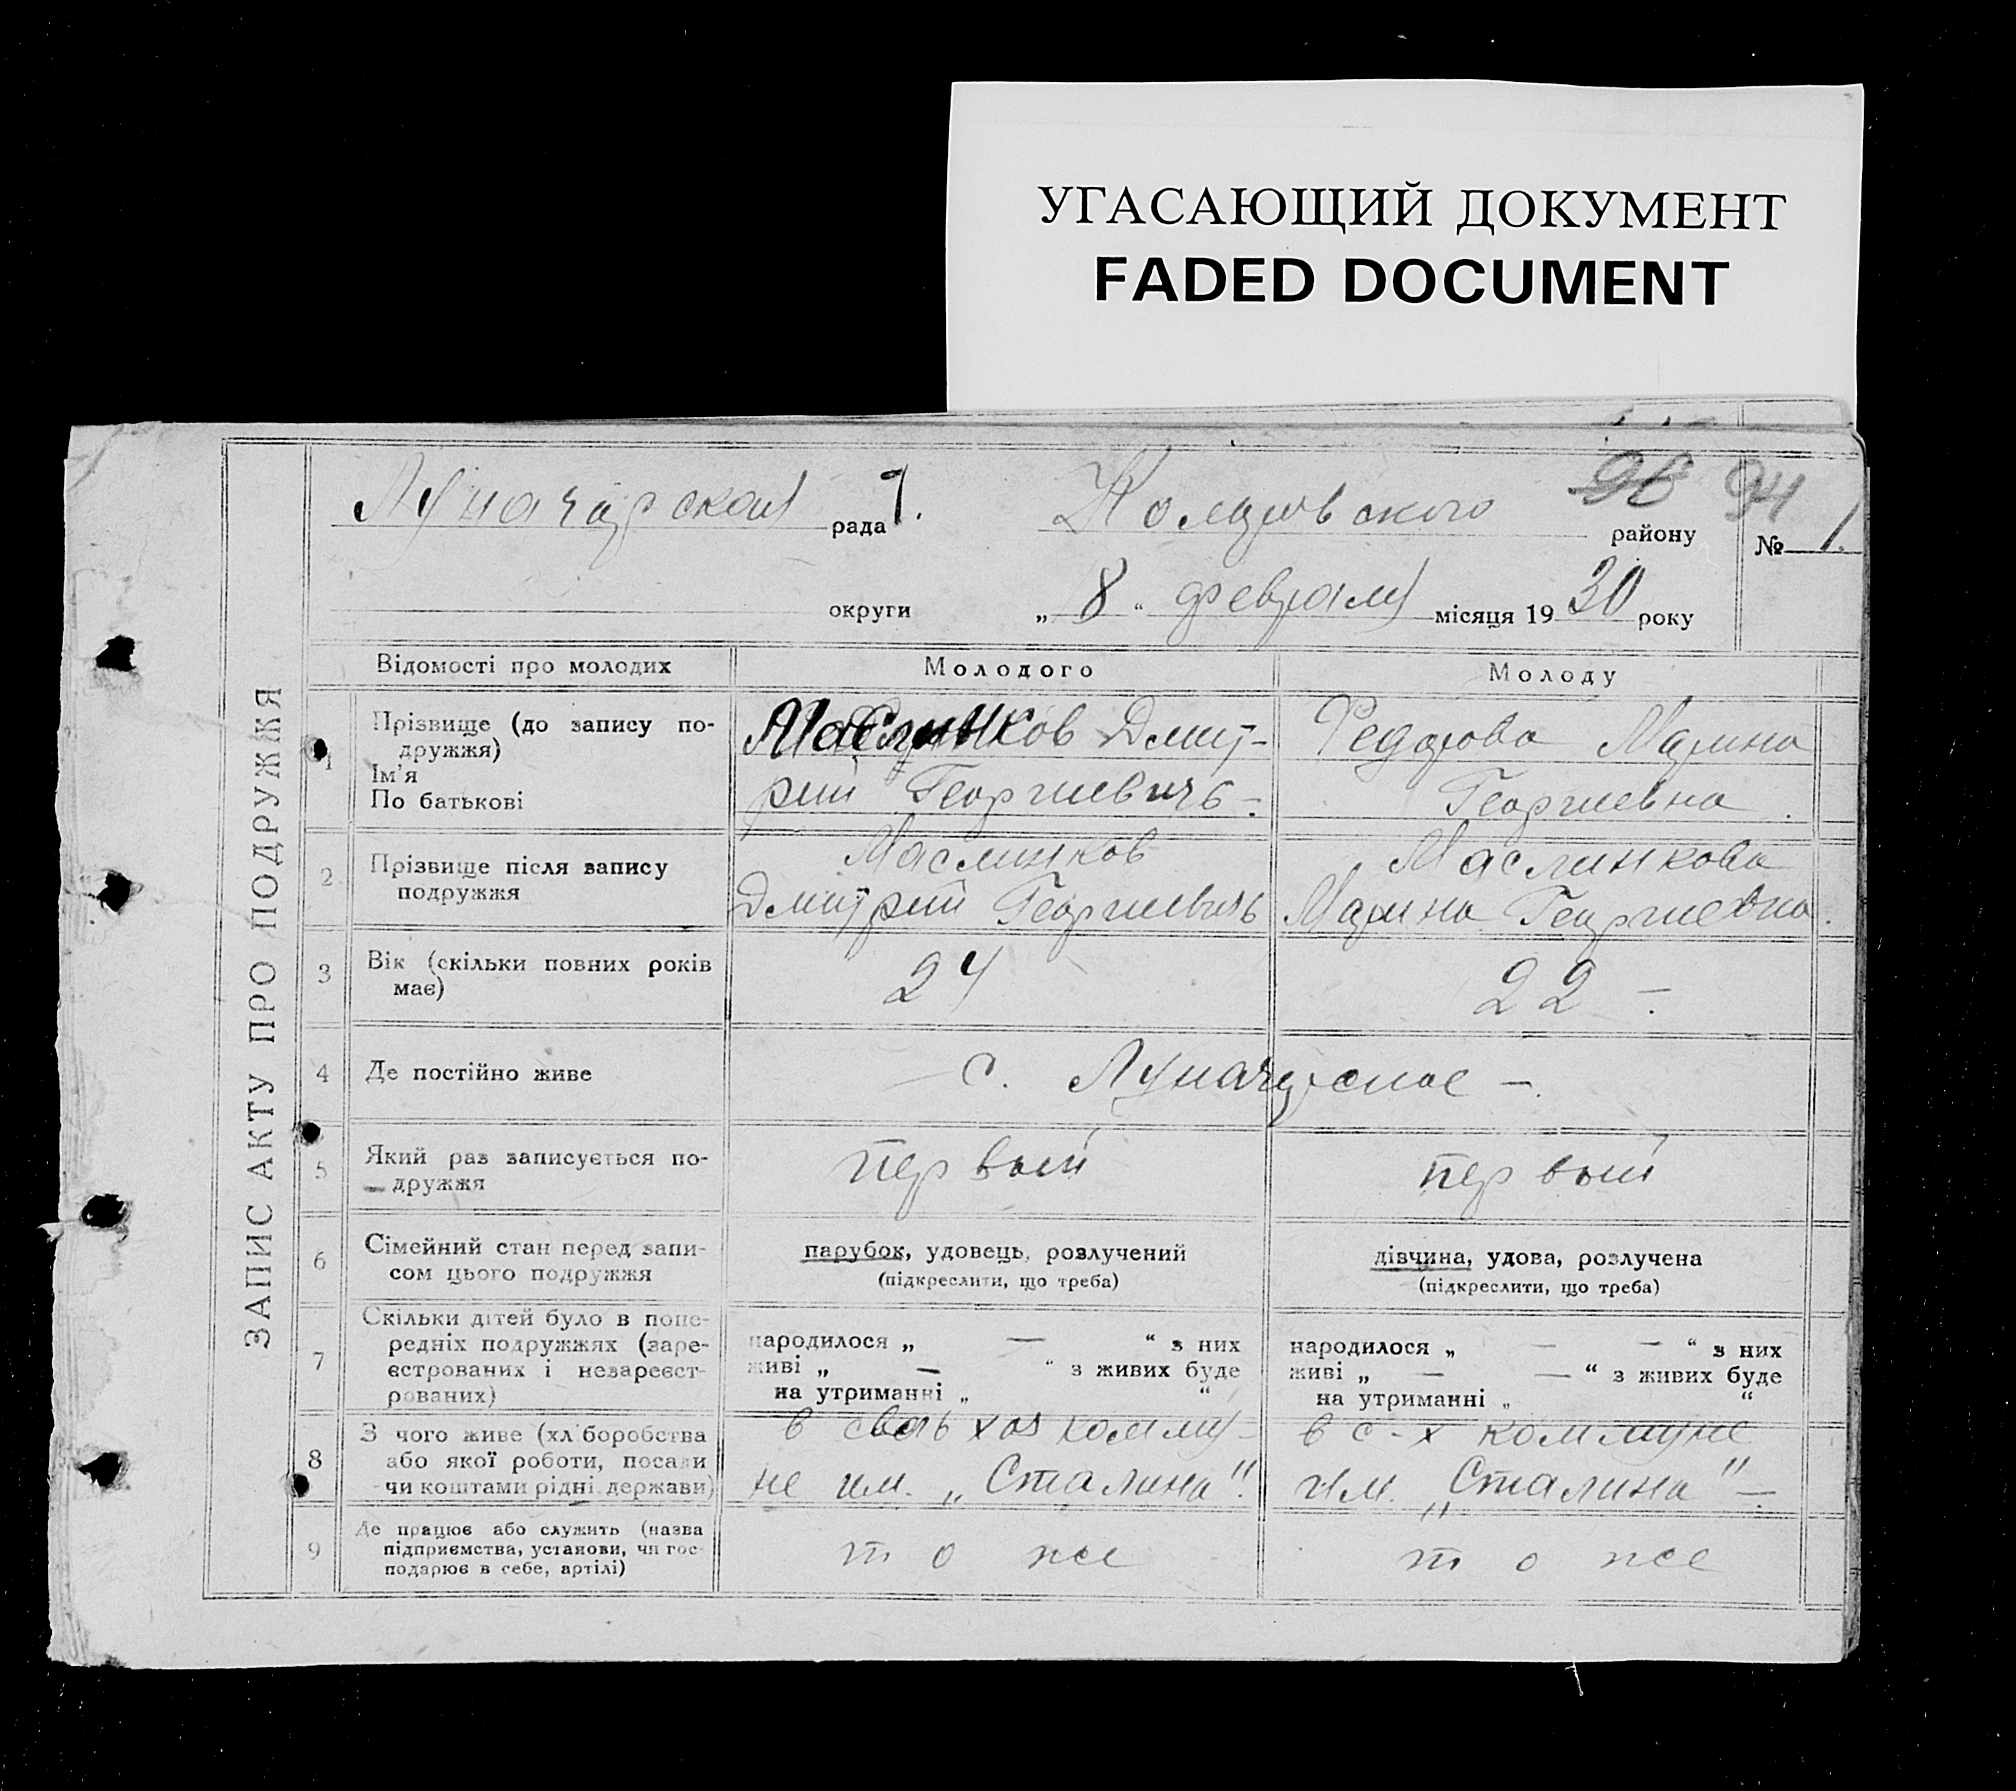 УГАСАЮЩИЙ ДОКУМЕНТ
FADED DOCUMENT
98 94
Луначарская рада 1.
району
№ 1.
округи „ 8 “ февраля місяця 19 30 року
ЗАПИС АКТУ ПРО ПОДРУЖЖЯ
Відомості про молодих
Молодого
Молоду
1
Прізвище (до запису по-
дружжя)
Ім'я
По батькові
Маслинков Дмит-
рий Георгиевичь -
Федорова Марина
Георгиевна.
2
Прізвище після запису
подружжя
Маслинков
Дмитрий Георгиевичь
Маслинкова
Марина Георгиевна.
3
Вік (скільки повних років
має)
24
22 -
4
Де постійно живе
с. Луначарское -.
5
Який раз записується по-
дружжя
первый
первый
6
Сімейний стан перед запи-
сом цього подружжя
парубок, удовець, розлучений
(підкреслити, що треба)
дівчина, удова, розлучена
(підкреслити, що треба)
7
Скільки дітей було в попе-
редніх подружжях (заре-
єстрованих і незареєст-
рованих)
народилося „ — “ з них
живі „ — “ з живих буде
на утриманні „ “
народилося „ — — “ з них
живі „ — — “ з живих буде
на утриманні „ “
8
З чого живе (хліборобства
або якої роботи, посади
чи коштами рідні держави)
в хоз комму-
не им. „Сталина“.
в с-х коммуне
им. „Сталина“ -
9
Де працює або служить (назва
підприємства, установи, чи гос-
подарює в себе, артілі)
то же
то же